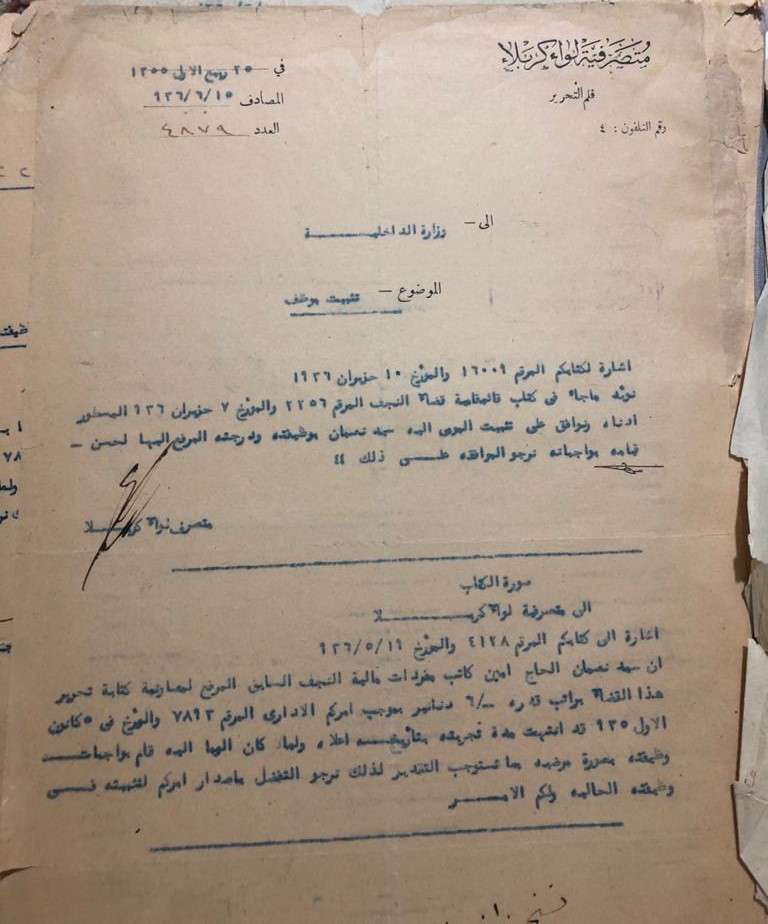 متصرفية لواء كربلاء
قلم التحرير
رقم التلفون : ٤
في ٢٥ ربيع الاول ١٣٥٥
المصادف ٩٣٦/٦/١٥
العدد ٤٨٧٩
الى — وزارة الداخليــة
الموضوع — تثبيت موظف
اشارة لكتابكم المرقم ١٦٠٠٩ والمؤرخ ١٠ حزيران ١٩٣٦
نؤيد ماجاء فى كتاب قائمقامية قضاء النجف المرقم ٢٢٥٦ والمؤرخ ٧ حزيران ٩٣٦ المسطور
ادناه ونوافق على تثبيت المومى اليه سيد نعمان بوظيفته ودرجته المرفع اليها لحسن —
قيامه بواجباته نرجو الموافقه علـى ذلك ٤٤
متصرف لواء كربـلا
صورة الكتاب
الى متصرفية لواء كربـلا
اشارة الى كتابكم المرقم ٤١٢٨ والمؤرخ ٩٣٦/٥/١٩
ان سيد نعمان الحاج امين كاتب مفردات مالية النجف السابق المرفع لمعاونية كتابة تحرير
هذا القضاء براتب قدره ٦/-- دنانير بموجب امركم الادارى المرقم ٧٨٩٣ والمؤرخ فى ٥ كانون
الاول ٩٣٥ قد انتهت مدة تجربته بتأريخـه اعلاه ولما كان الومأ اليه قام بواجبات
وظيفته بصورة مرضيه مما تستوجب التقدير لذلك نرجو التفضل باصدار امركم لتثبيته فـى
وظيفته الحاليه ولكم الامـر